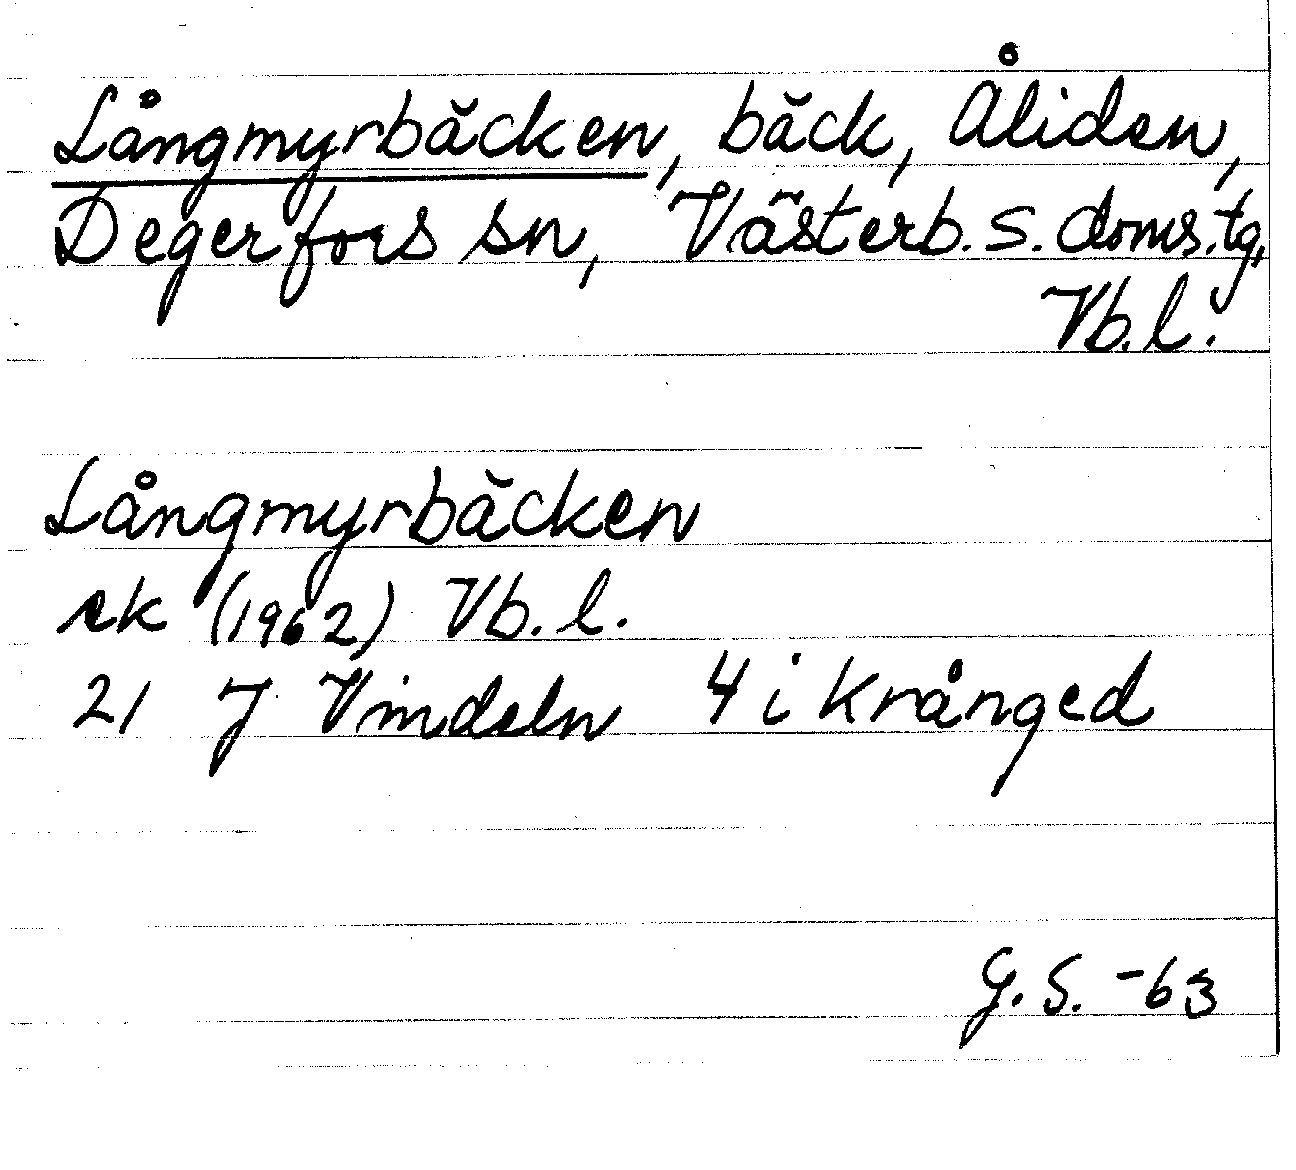 Långmyrbäcken, bäck, Åliden,
Degerfors sn, Västerb. s. doms. tg,
Vb. l.
Långmyrbäcken
ek (1962) Vb. l.
21 J Vindeln 4 i Krånged
G. S. -63